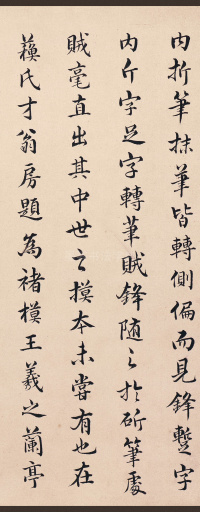 内折筆抹筆皆轉側偏而見鋒蹔字
内斤字足字轉筆賊鋒隨之於斫筆處
賊毫直出其中世之摸本未嘗有也在
蘓氏才翁房題為褚模王羲之蘭亭